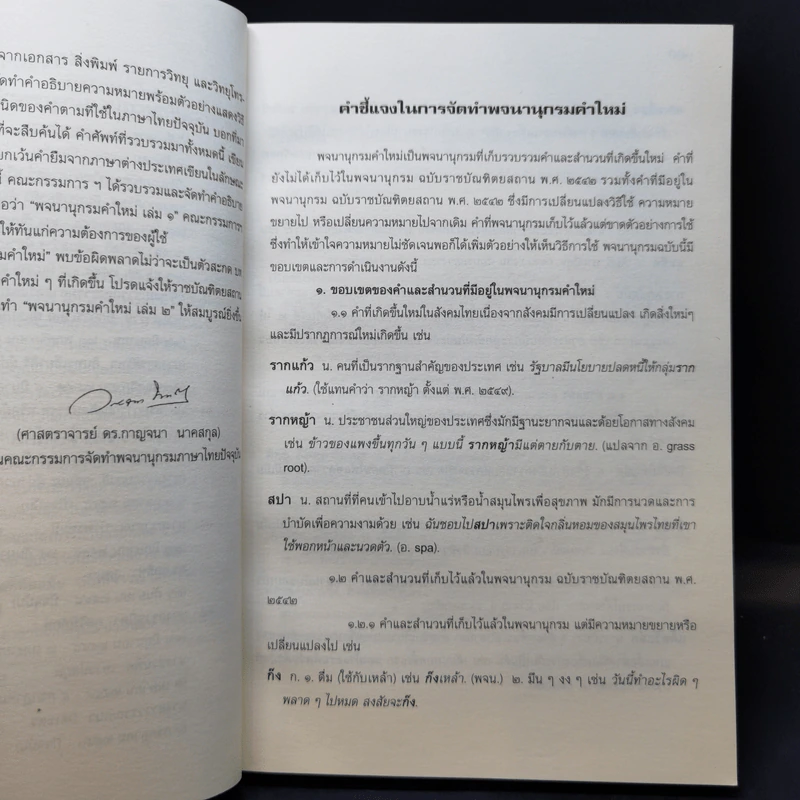 จากเอกสาร สิ่งพิมพ์ รายการวิทยุ และวิทยุโทร-
ดทำคำอธิบายความหมายพร้อมตัวอย่างแสดงวิธี
นิดของคำตามที่ใช้ในภาษาไทยปัจจุบัน บอกที่มา
ที่จะสืบค้นได้ คำศัพท์ที่รวบรวมมาทั้งหมดนี้ เขียน
ยกเว้นคำยืมจากภาษาต่างประเทศเขียนในลักษณะ
คณะกรรมการ ฯ ได้รวบรวมและจัดทำคำอธิบาย
อว่า "พจนานุกรมคำใหม่ เล่ม ๑" คณะกรรมการฯ
ให้ทันแก่ความต้องการของผู้ใช้
มคำใหม่" พบข้อผิดพลาดไม่ว่าจะเป็นตัวสะกด บท
คำใหม่ ๆ ที่เกิดขึ้น โปรดแจ้งให้ราชบัณฑิตยสถาน
ทำ "พจนานุกรมคำใหม่ เล่ม ๒" ให้สมบูรณ์ยิ่งขึ้น
(ศาสตราจารย์ ดร.กาญจนา นาคสกุล)
นคณะกรรมการจัดทำพจนานุกรมภาษาไทยปัจจุบัน
คำชี้แจงในการจัดทำพจนานุกรมคำใหม่
พจนานุกรมคำใหม่เป็นพจนานุกรมที่เก็บรวบรวมคำและสำนวนที่เกิดขึ้นใหม่ คำที่
ยังไม่ได้เก็บไว้ในพจนานุกรม ฉบับราชบัณฑิตยสถาน พ.ศ. ๒๕๔๒ รวมทั้งคำที่มีอยู่ใน
พจนานุกรม ฉบับราชบัณฑิตยสถาน พ.ศ. ๒๕๔๒ ซึ่งมีการเปลี่ยนแปลงวิธีใช้ ความหมาย
ขยายไป หรือเปลี่ยนความหมายไปจากเดิม คำที่พจนานุกรมเก็บไว้แล้วแต่ขาดตัวอย่างการใช้
ซึ่งทำให้เข้าใจความหมายไม่ชัดเจนพอก็ได้เพิ่มตัวอย่างให้เห็นวิธีการใช้ พจนานุกรมฉบับนี้มี
ขอบเขตและการดำเนินงานดังนี้
๑. ขอบเขตของคำและสำนวนที่มีอยู่ในพจนานุกรมคำใหม่
๑.๑ คำที่เกิดขึ้นใหม่ในสังคมไทยเนื่องจากสังคมมีการเปลี่ยนแปลง เกิดสิ่งใหม่ๆ
และมีปรากฏการณ์ใหม่เกิดขึ้น เช่น
รากแก้ว น. คนที่เป็นรากฐานสำคัญของประเทศ เช่น รัฐบาลมีนโยบายปลดหนี้ให้กลุ่มราก
แก้ว. (ใช้แทนคำว่า รากหญ้า ตั้งแต่ พ.ศ. ๒๕๔๙).
รากหญ้า น. ประชาชนส่วนใหญ่ของประเทศซึ่งมักมีฐานะยากจนและด้อยโอกาสทางสังคม
เช่น ข้าวของแพงขึ้นทุกวัน ๆ แบบนี้ รากหญ้ามีแต่ตายกับตาย. (แปลจาก อ. grass
root).
สปา น. สถานที่ที่คนเข้าไปอาบน้ำแร่หรือน้ำสมุนไพรเพื่อสุขภาพ มักมีการนวดและการ
บำบัดเพื่อความงามด้วย เช่น ฉันชอบไปสปาเพราะติดใจกลิ่นหอมของสมุนไพรไทยที่เขา
ใช้พอกหน้าและนวดตัว. (อ. spa).
๑.๒ คำและสำนวนที่เก็บไว้แล้วในพจนานุกรม ฉบับราชบัณฑิตยสถาน พ.ศ.
๒๕๔๒
๑.๒.๑ คำและสำนวนที่เก็บไว้แล้วในพจนานุกรม แต่มีความหมายขยายหรือ
เปลี่ยนแปลงไป เช่น
กึ๊ง ก. ๑. ดื่ม (ใช้กับเหล้า) เช่น กึ๊งเหล้า. (พจน.) ๒. มึน ๆ งง ๆ เช่น วันนี้ทำอะไรผิด ๆ
พลาด ๆ ไปหมด สงสัยจะกึ๊ง.